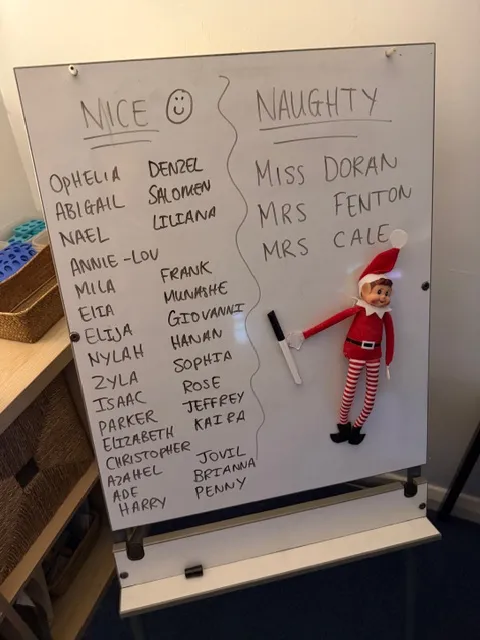 NICE ☺
OPHELIA
ABIGAIL
NAEL
ANNIE-LOU
MILA
ELIA
ELIJA
NYLAH
ZYLA
ISAAC
PARKER
ELIZABETH
CHRISTOPHER
AZAHEL
ADE
HARRY
DENZEL
SALOMEN
LILIANA
FRANK
MUNASHE
GIOVANNI
HANAN
SOPHIA
ROSE
JEFFREY
KAIRA
JOVIL
BRIANNA
PENNY
NAUGHTY
MISS DORAN
MRS FENTON
MRS CALE